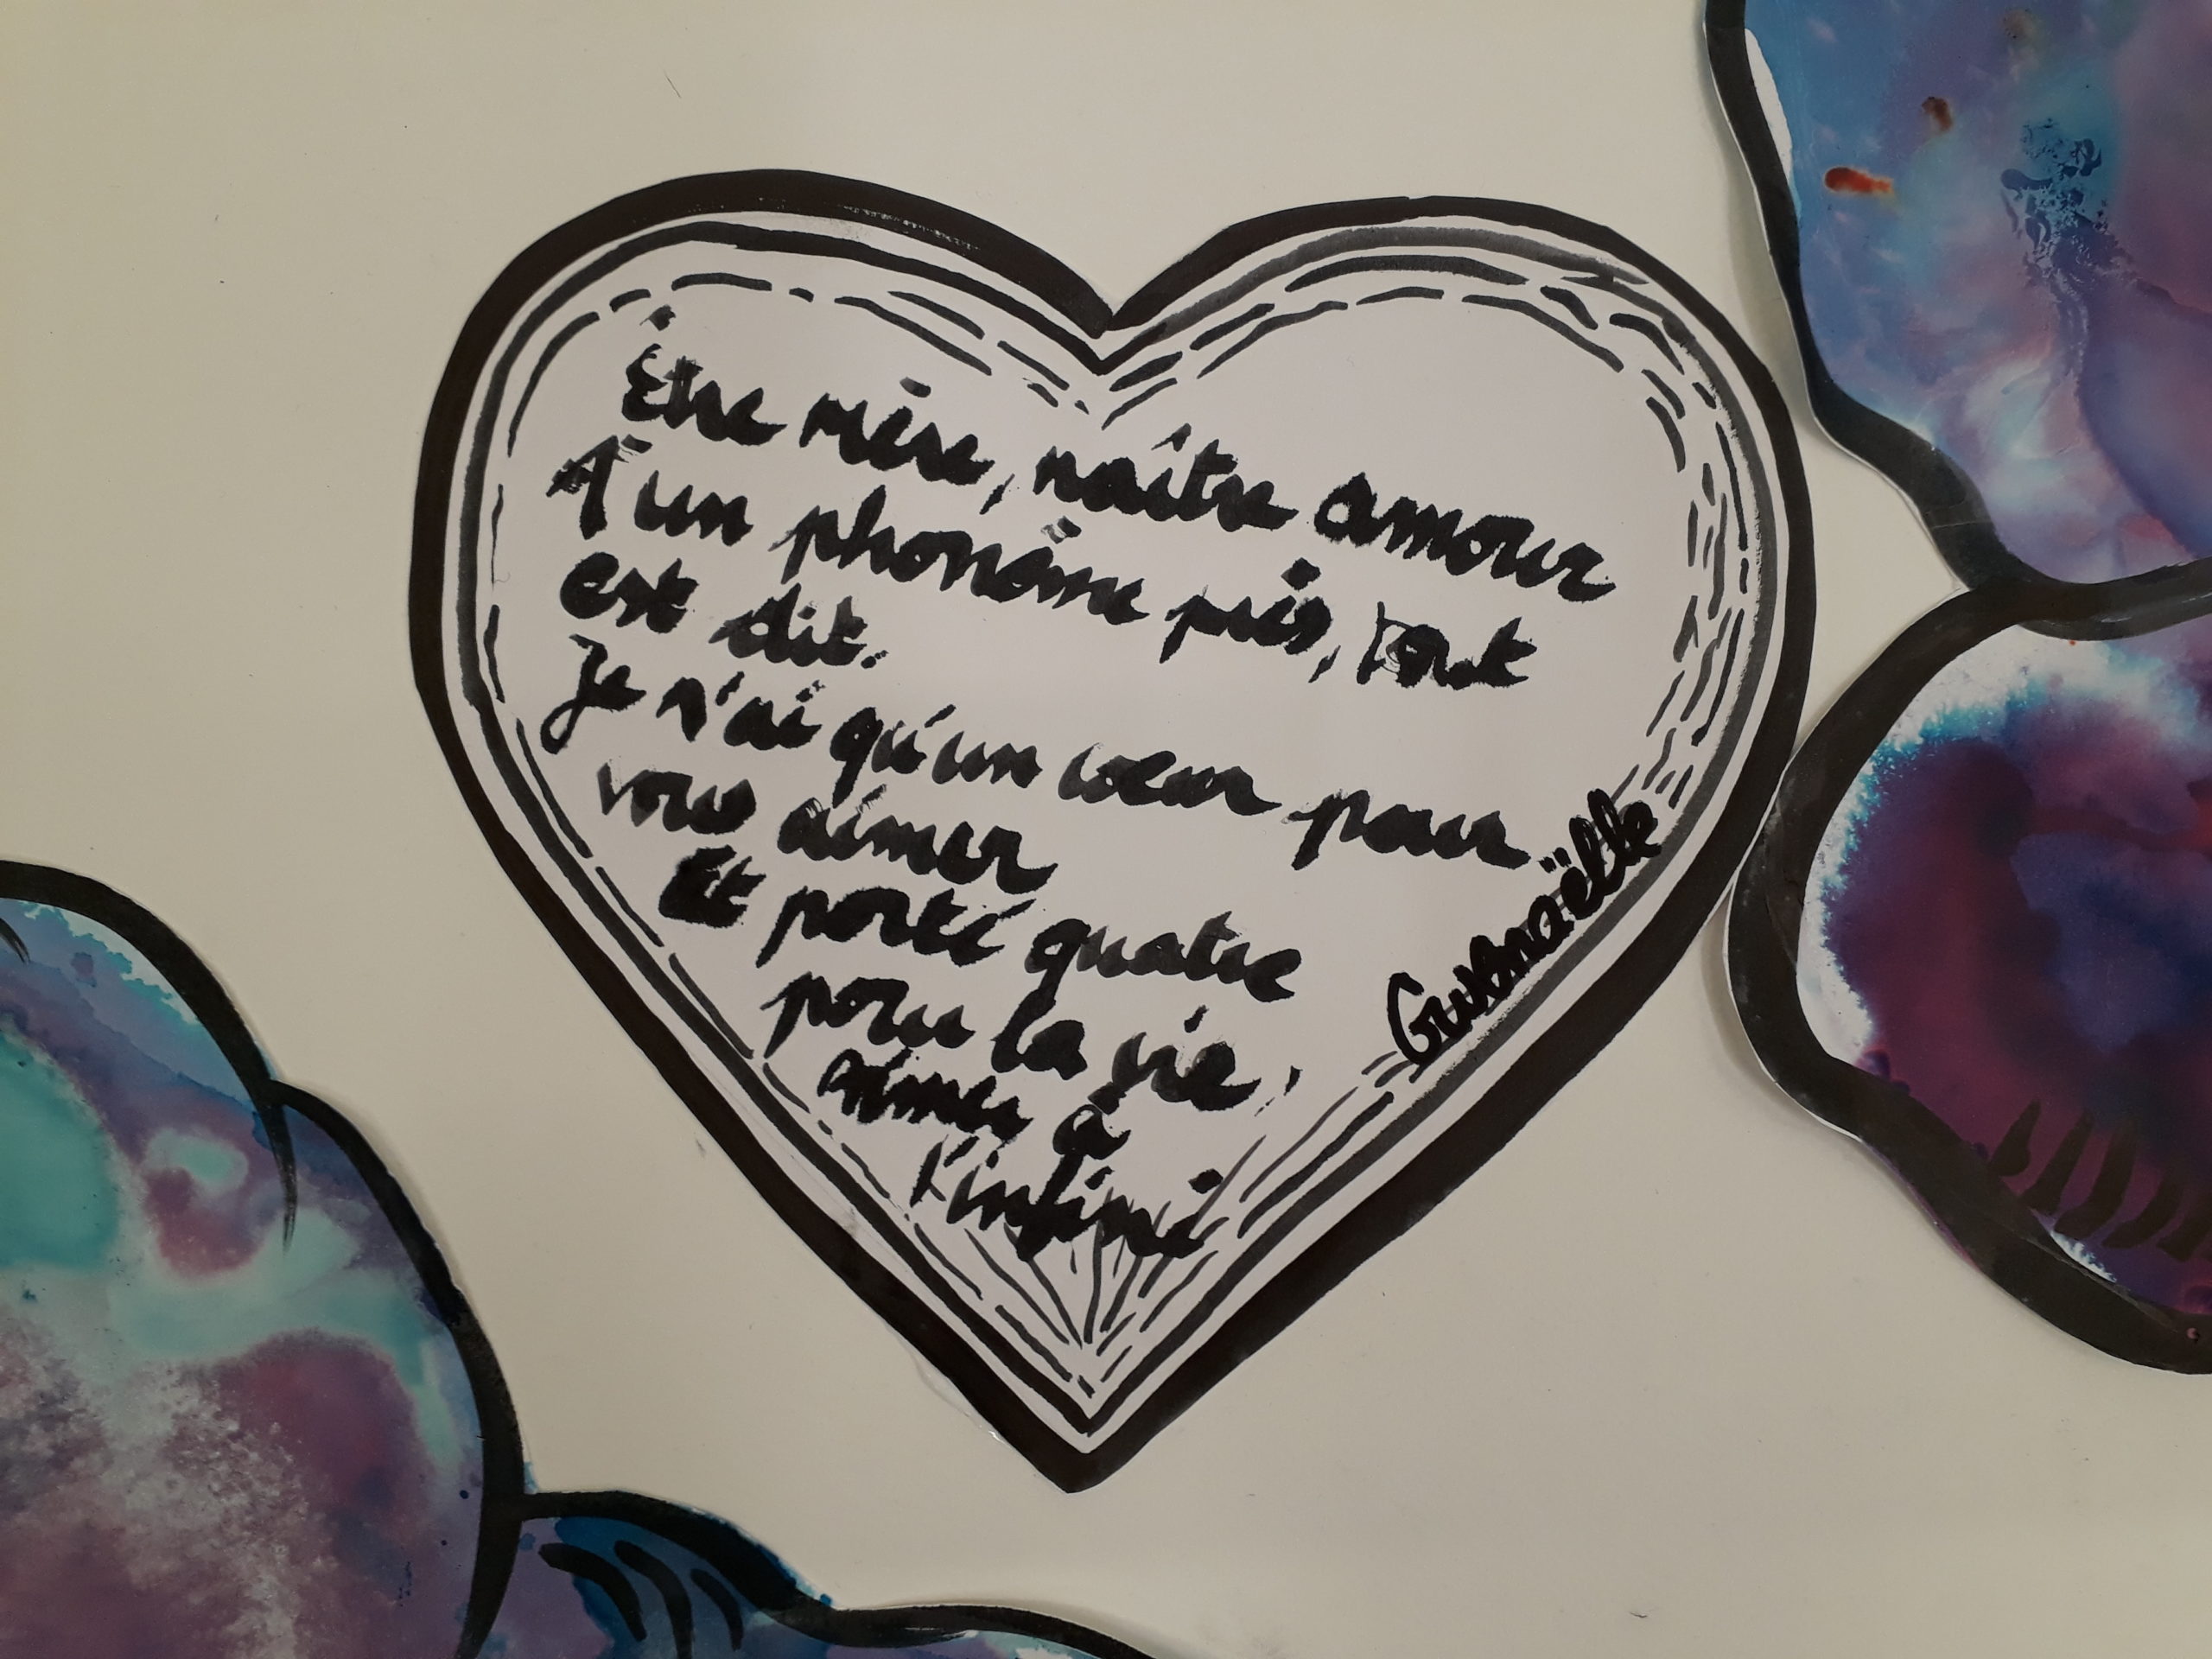 Être mère, naître amour
À un phonème près, tout
est dit.
Je n'ai qu'un cœur pour
vous aimer
Et porté quatre
pour la vie,
Aimer à
l'infini
Gwenaëlle